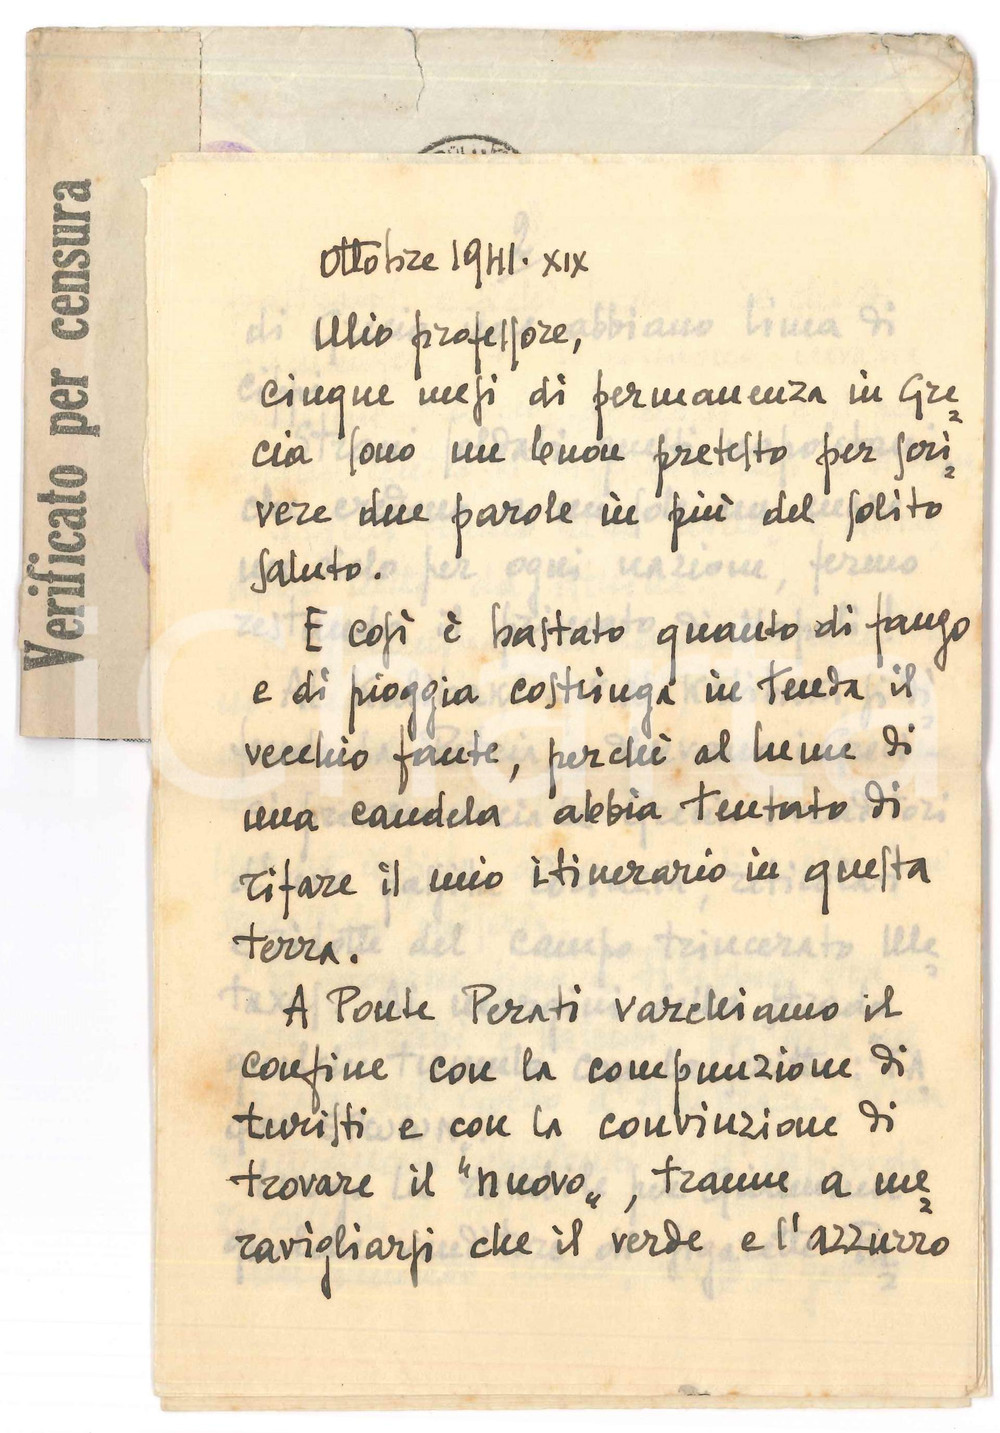 Verificato per censura
Ottobre 1941. XIX
Mio professore,
cinque mesi di permanenza in Gre=
cia sono un buon pretesto per scri=
vere due parole in più del solito
saluto.
E così è bastato quanto di fango
e di pioggia costringa in tenda il
vecchio fante, perchè al lume di
una candela abbia tentato di
rifare il mio itinerario in questa
terra.
A Ponte Perati varchiamo il
confine con la compunzione di
turisti e con la convinzione di
trovare il "nuovo", tranne a me=
ravigliarsi che il verde e l'azzurro